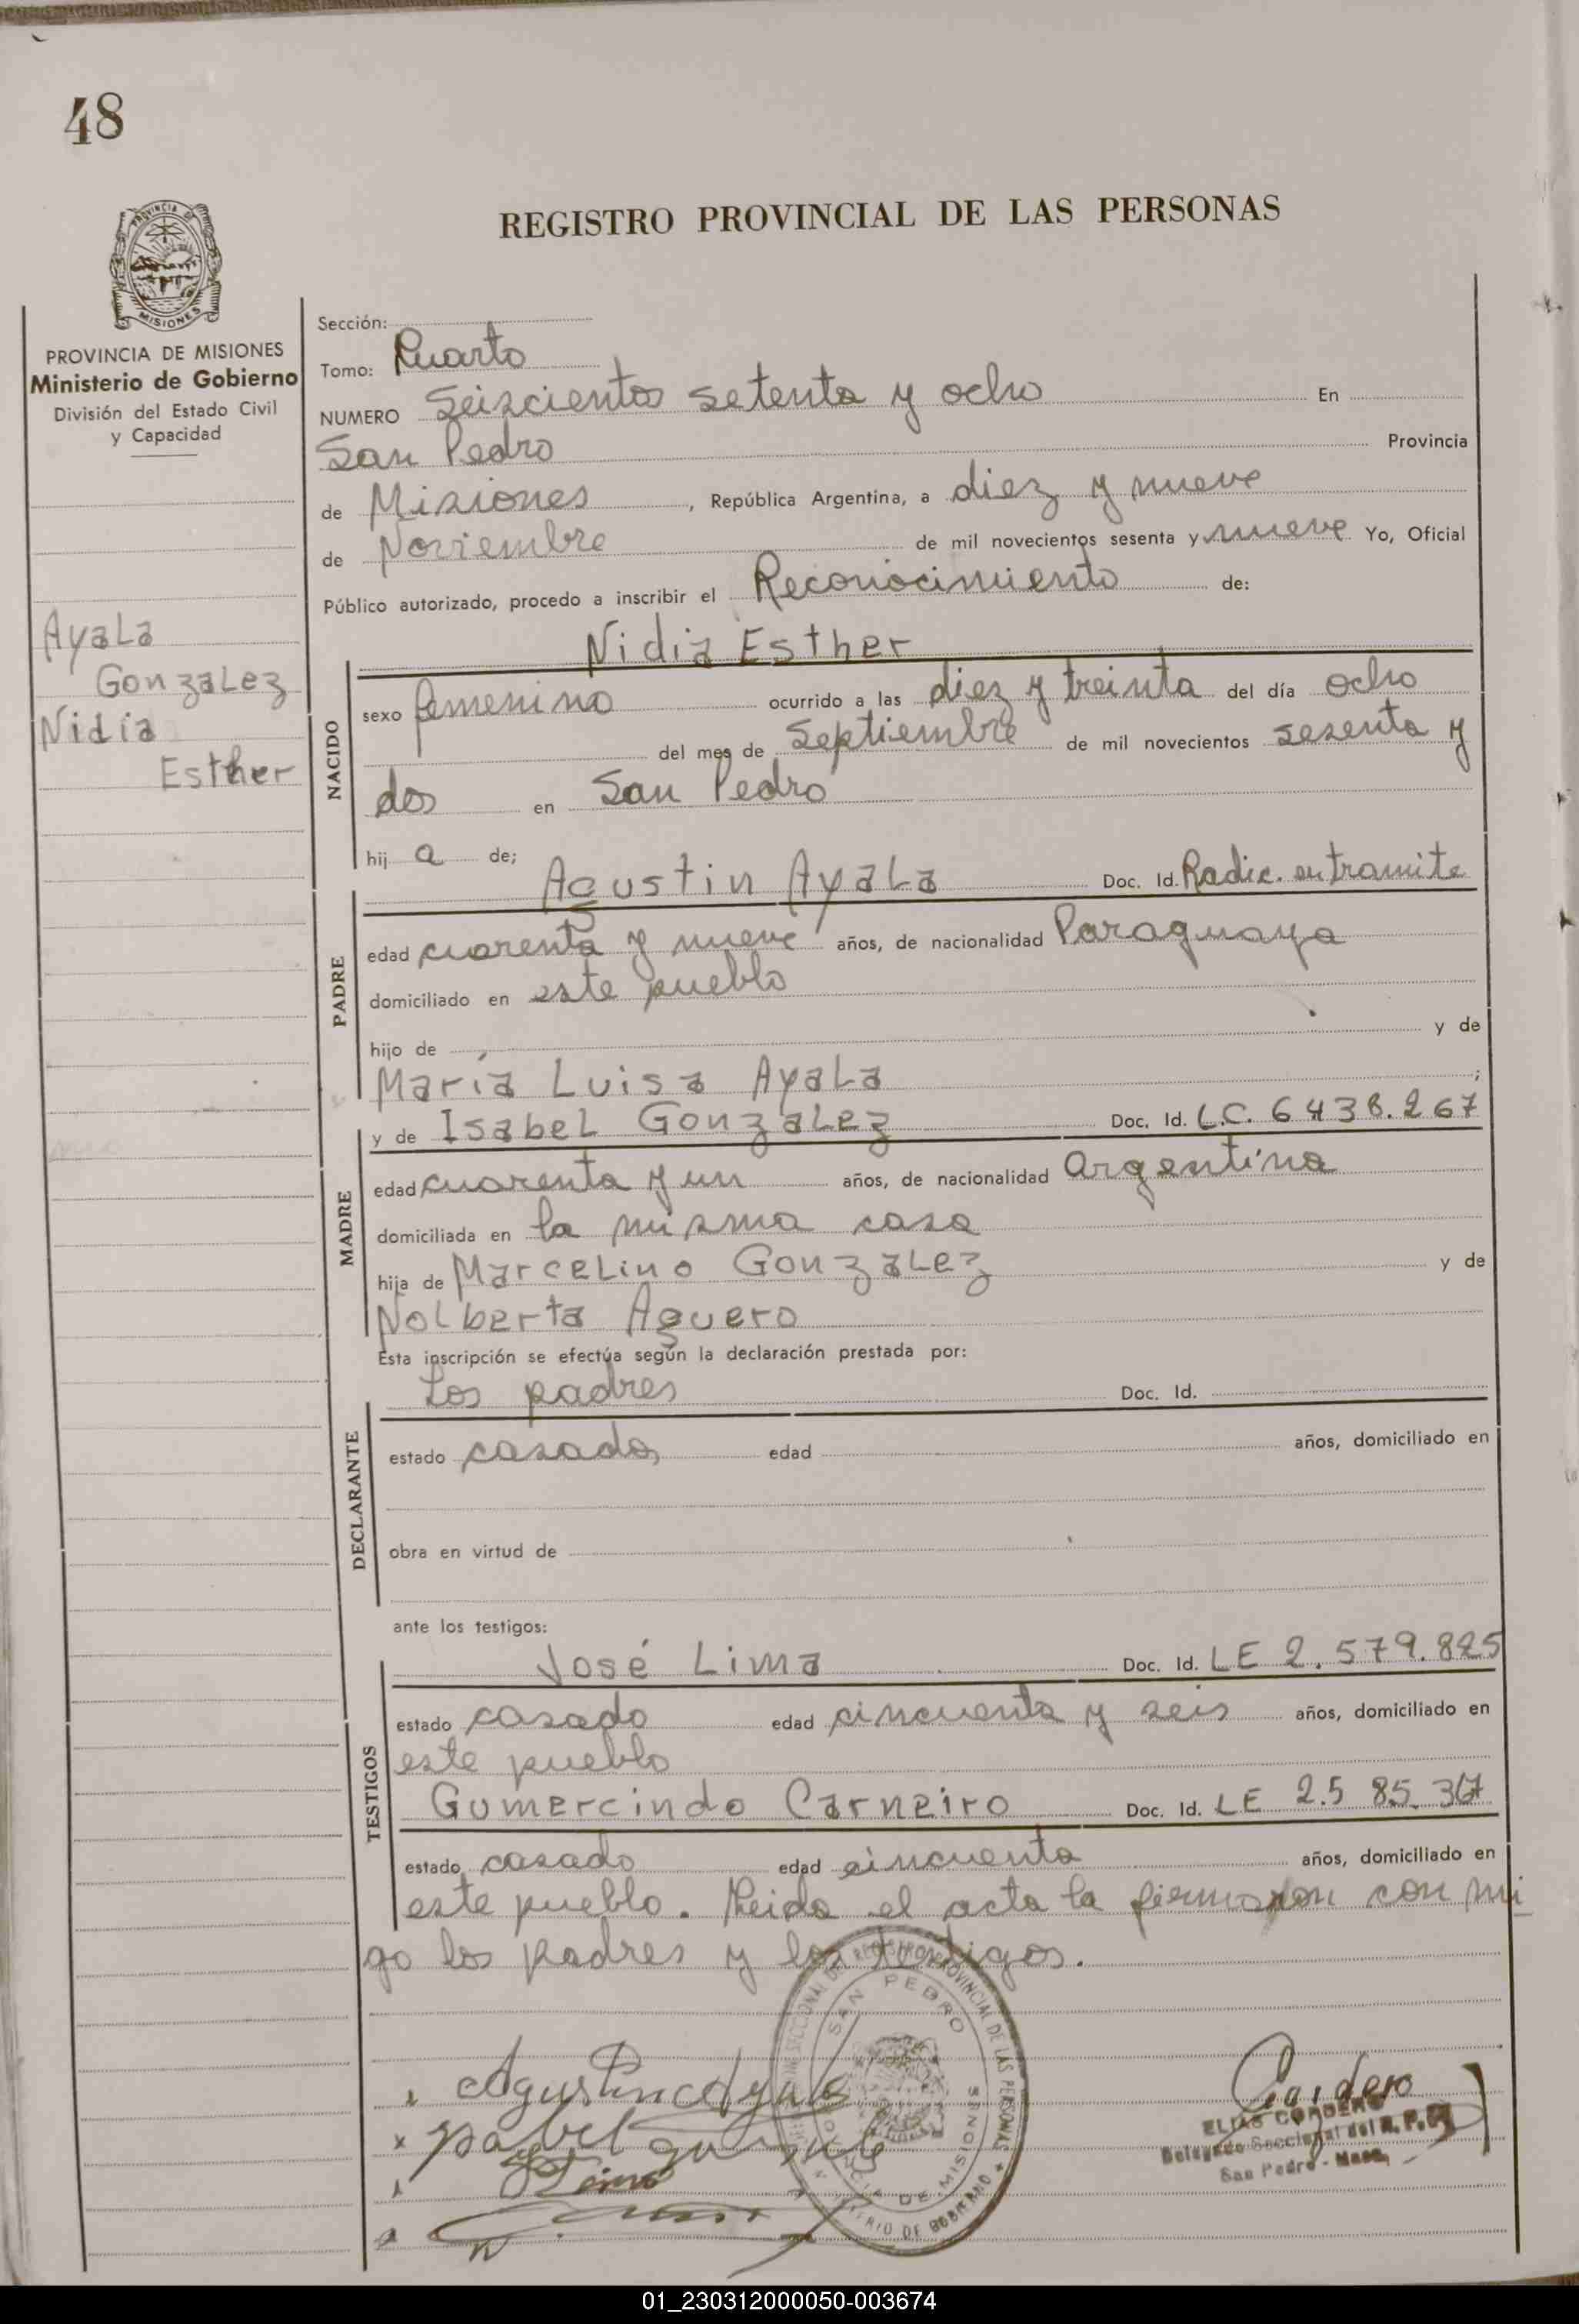 48
REGISTRO PROVINCIAL DE LAS PERSONAS
PROVINCIA DE MISIONES
Ministerio de Gobierno
División del Estado Civil
y Capacidad
Ayala
Gonzalez
Nidia
Esther
Sección:
Tomo: Cuarto
NUMERO Seiscientos setenta y ocho En
San Pedro Provincia
de Misiones, República Argentina, a diez y nueve
de Noviembre de mil novecientos sesenta y nueve Yo, Oficial
Público autorizado, procedo a inscribir el Reconocimiento de:
Nidia Esther
NACIDO
sexo femenino ocurrido a las diez y treinta del día ocho
del mes de Septiembre de mil novecientos sesenta y
dos en San Pedro
hij a de;
Agustin Ayala Doc. Id. Radic. en tramite
PADRE
edad cuarenta y nueve años, de nacionalidad Paraguaya
domiciliado en este pueblo
hijo de y de
María Luisa Ayala ;
y de Isabel Gonzalez Doc. Id. L.C. 6438.267
MADRE
edad cuarenta y un años, de nacionalidad argentina
domiciliada en la misma casa
hija de Marcelino Gonzalez y de
Nolberta Aguero
Esta inscripción se efectúa según la declaración prestada por:
Los padres Doc. Id.
DECLARANTE
estado casados edad años, domiciliado en
obra en virtud de
ante los testigos:
José Lima Doc. Id. LE 2.579.825
TESTIGOS
estado casado edad cincuenta y seis años, domiciliado en
este pueblo
Gumercindo Carneiro Doc. Id. LE 2.585.
estado casado edad cincuenta años, domiciliado en
este pueblo. Leida el acta la firmaron con mi
go los padres y los testigos.
SAN PEDRO
PROVINCIA DE MISIONES
MINISTERIO DE GOBIERNO
Agustin Ayala
Isabel Gonzalez
Lima
Cordero
ELIAS CORDERO
Delegado Seccional del R. P. P.
San Pedro - Mnes.
01_230312000050-003674